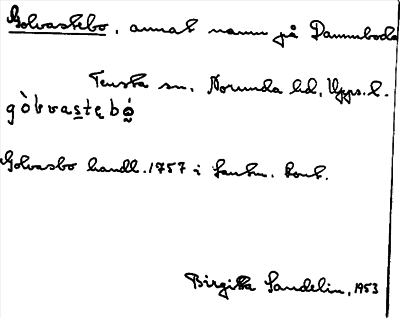 Golvastebo, annat namn på Dammboda
Tensta sn, Norunda hd, Upps. l.
gòlvastębó̰
Golvasbo handl. 1757 i Lantm. kont.
Birgitta Sandelin, 1953